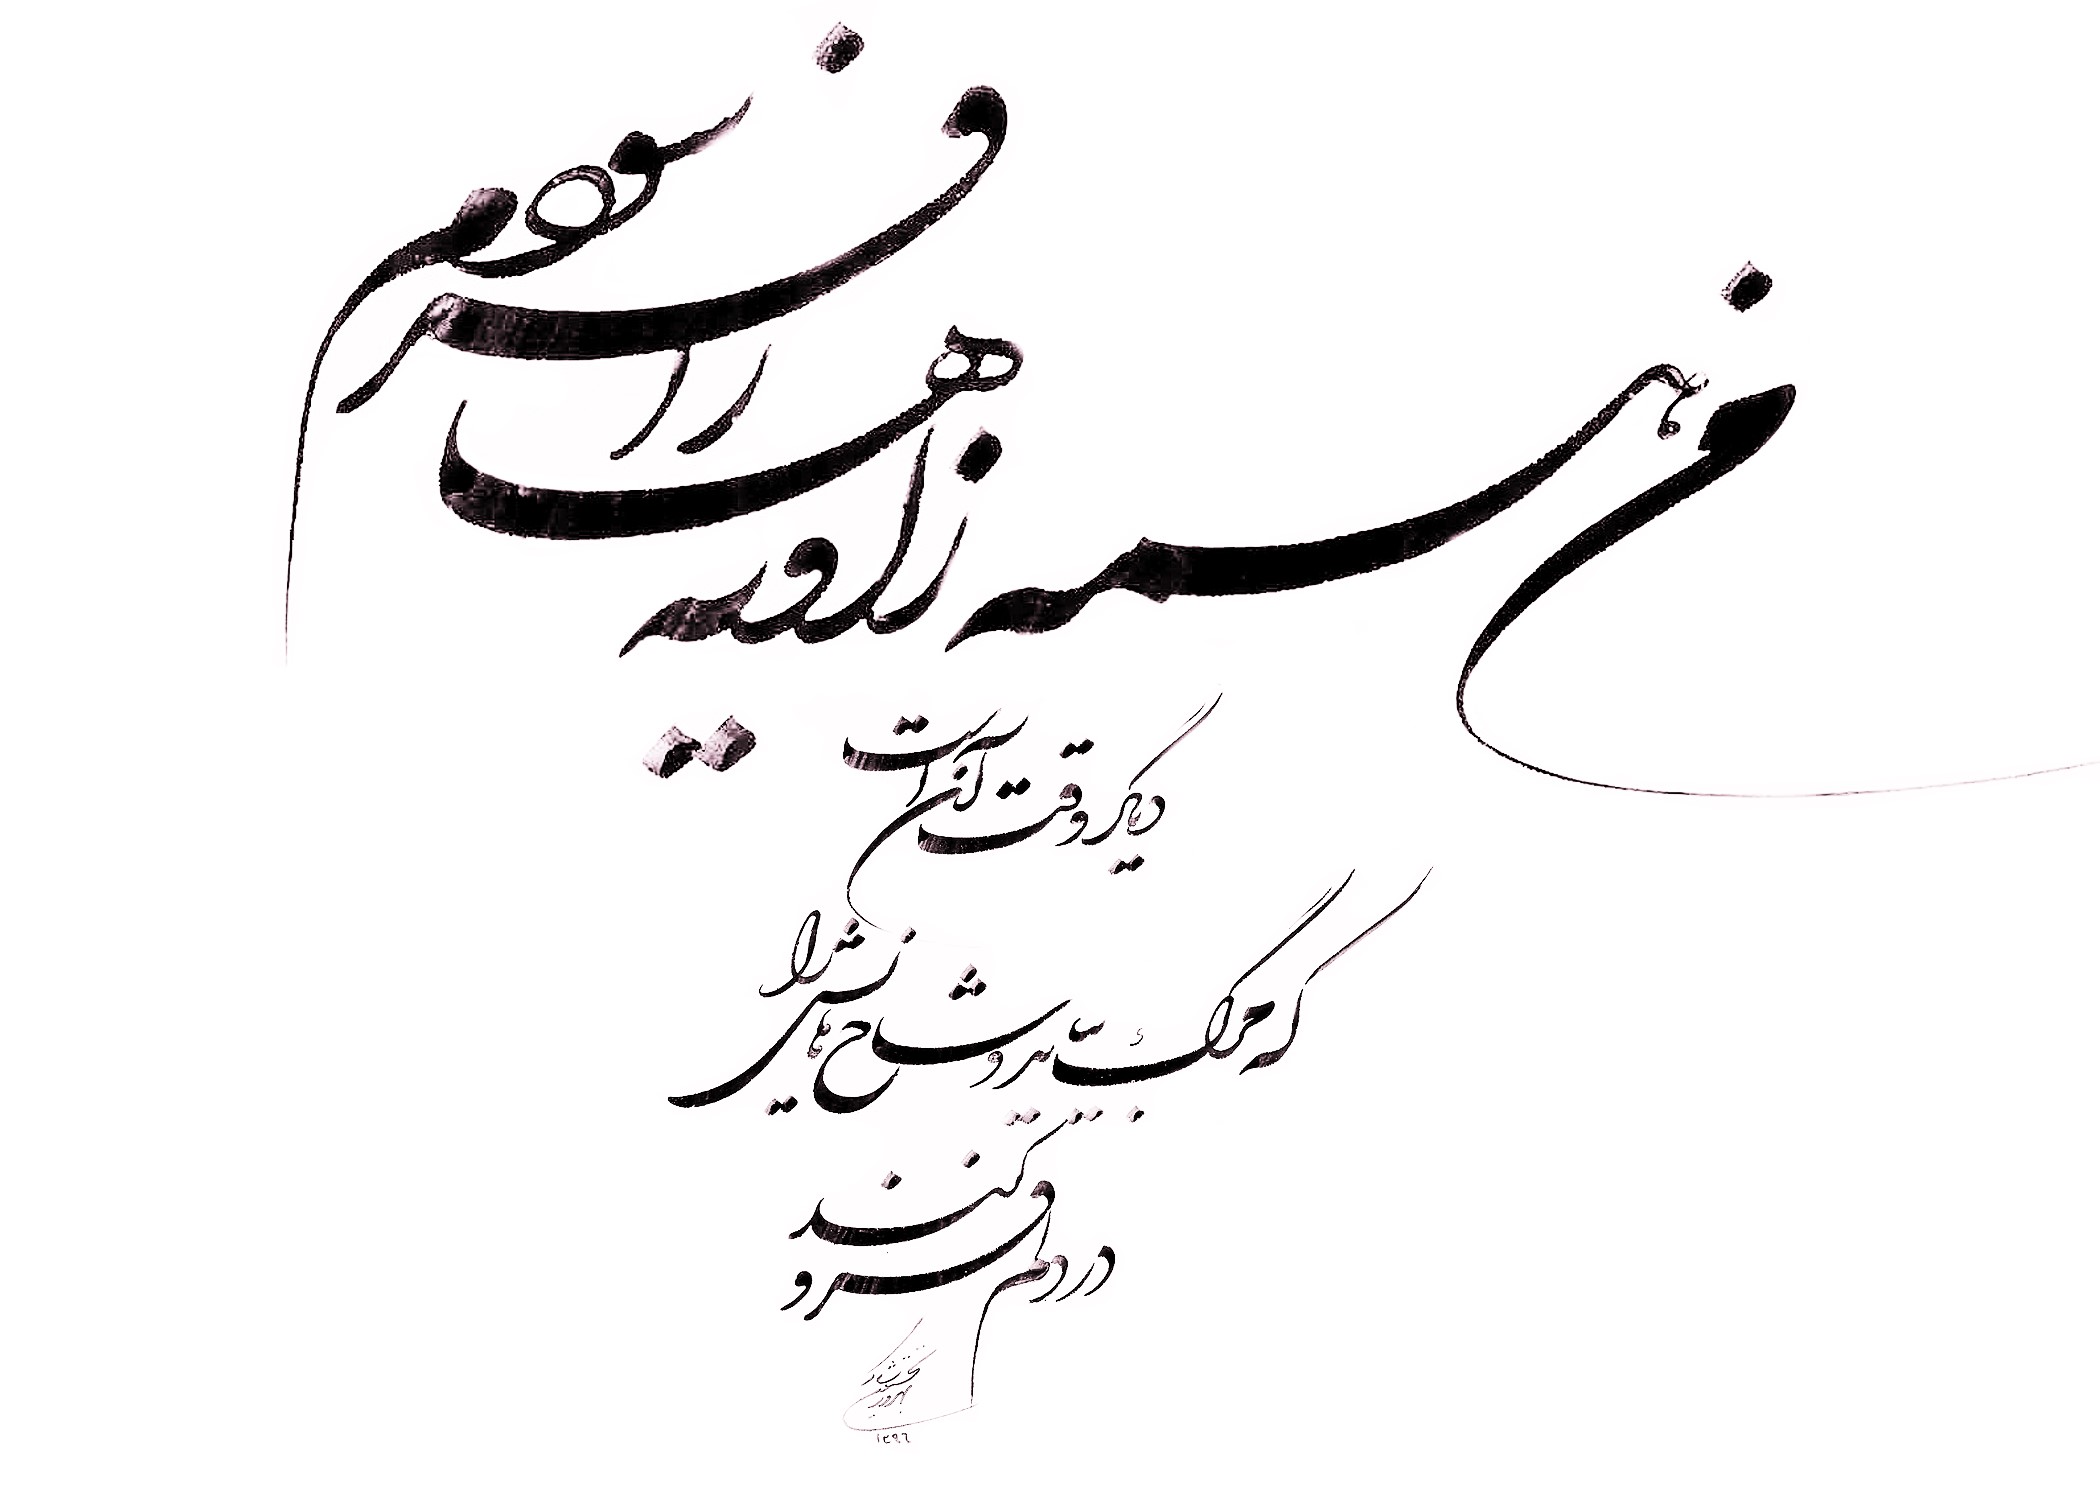 من همه زاویه ها را فرسودم
دیگر وقت آن است
که مرگ و شاخ هایش را
در دلم فرو کند
۱۳۹۶